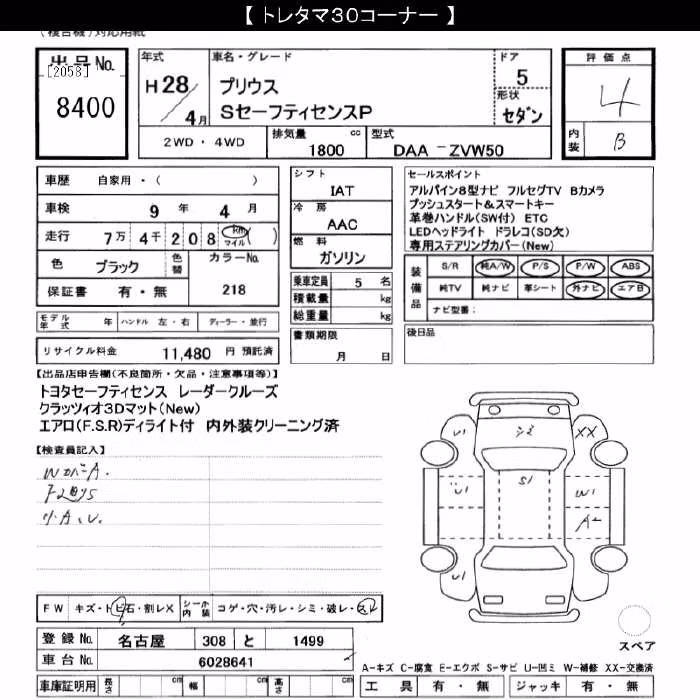 【 トレタマ３０コーナー 】
(複合機)対応用紙
出品No. [2058] 8400
年式 H28/4月
車名・グレード プリウス
SセーフティセンスP
ドア 5
形状 セダン
評価点 4
内装 B
2WD ・ 4WD
排気量 cc 1800
型式 DAA －ZVW50
車歴 自家用・( )
車検 9 年 4 月
走行 7万 4千 2 0 8 km マイル ( )
色 ブラック 色替 カラーNo.
保証書 有 ・ 無 218
モデル年式 年 ハンドル 左 ・ 右 ディーラー ・ 並行
リサイクル料金 11,480 円 預託済
シフト
IAT
冷房
AAC
燃料
ガソリン
乗車定員 5 名
積載量 kg
総重量 kg
書類期限
月 日
セールスポイント
アルパイン８型ナビ フルセグTV Bカメラ
プッシュスタート＆スマートキー
革巻ハンドル(SW付) ETC
LEDヘッドライト ドラレコ(SD欠)
専用ステアリングカバー(New)
装備品
S/R 純A/W P/S P/W ABS
純TV 純ナビ 革シート 外ナビ エアB
ナビ型番：
後日品
【出品店申告欄(不良箇所・欠品・注意事項等)】
トヨタセーフティセンス レーダークルーズ
クラッツィオ3Dマット(New)
エアロ(F.S.R)ディライト付 内外装クリーニング済
【検査員記入】
U1 XX
S1
U1 W1
A-
U1
FW キズ・トビ石・割レX シート内装 コゲ・穴・汚レ・シミ・破レ・スレ
登録No. 名古屋 308 と 1499
車台No. 6028641
車庫証明用 長さ cm 幅 cm 高さ cm
スペア
A-キズ C-腐食 E-エクボ S-サビ U-凹ミ W-補修 XX-交換済
工具 有 ・ 無 ジャッキ 有 ・ 無